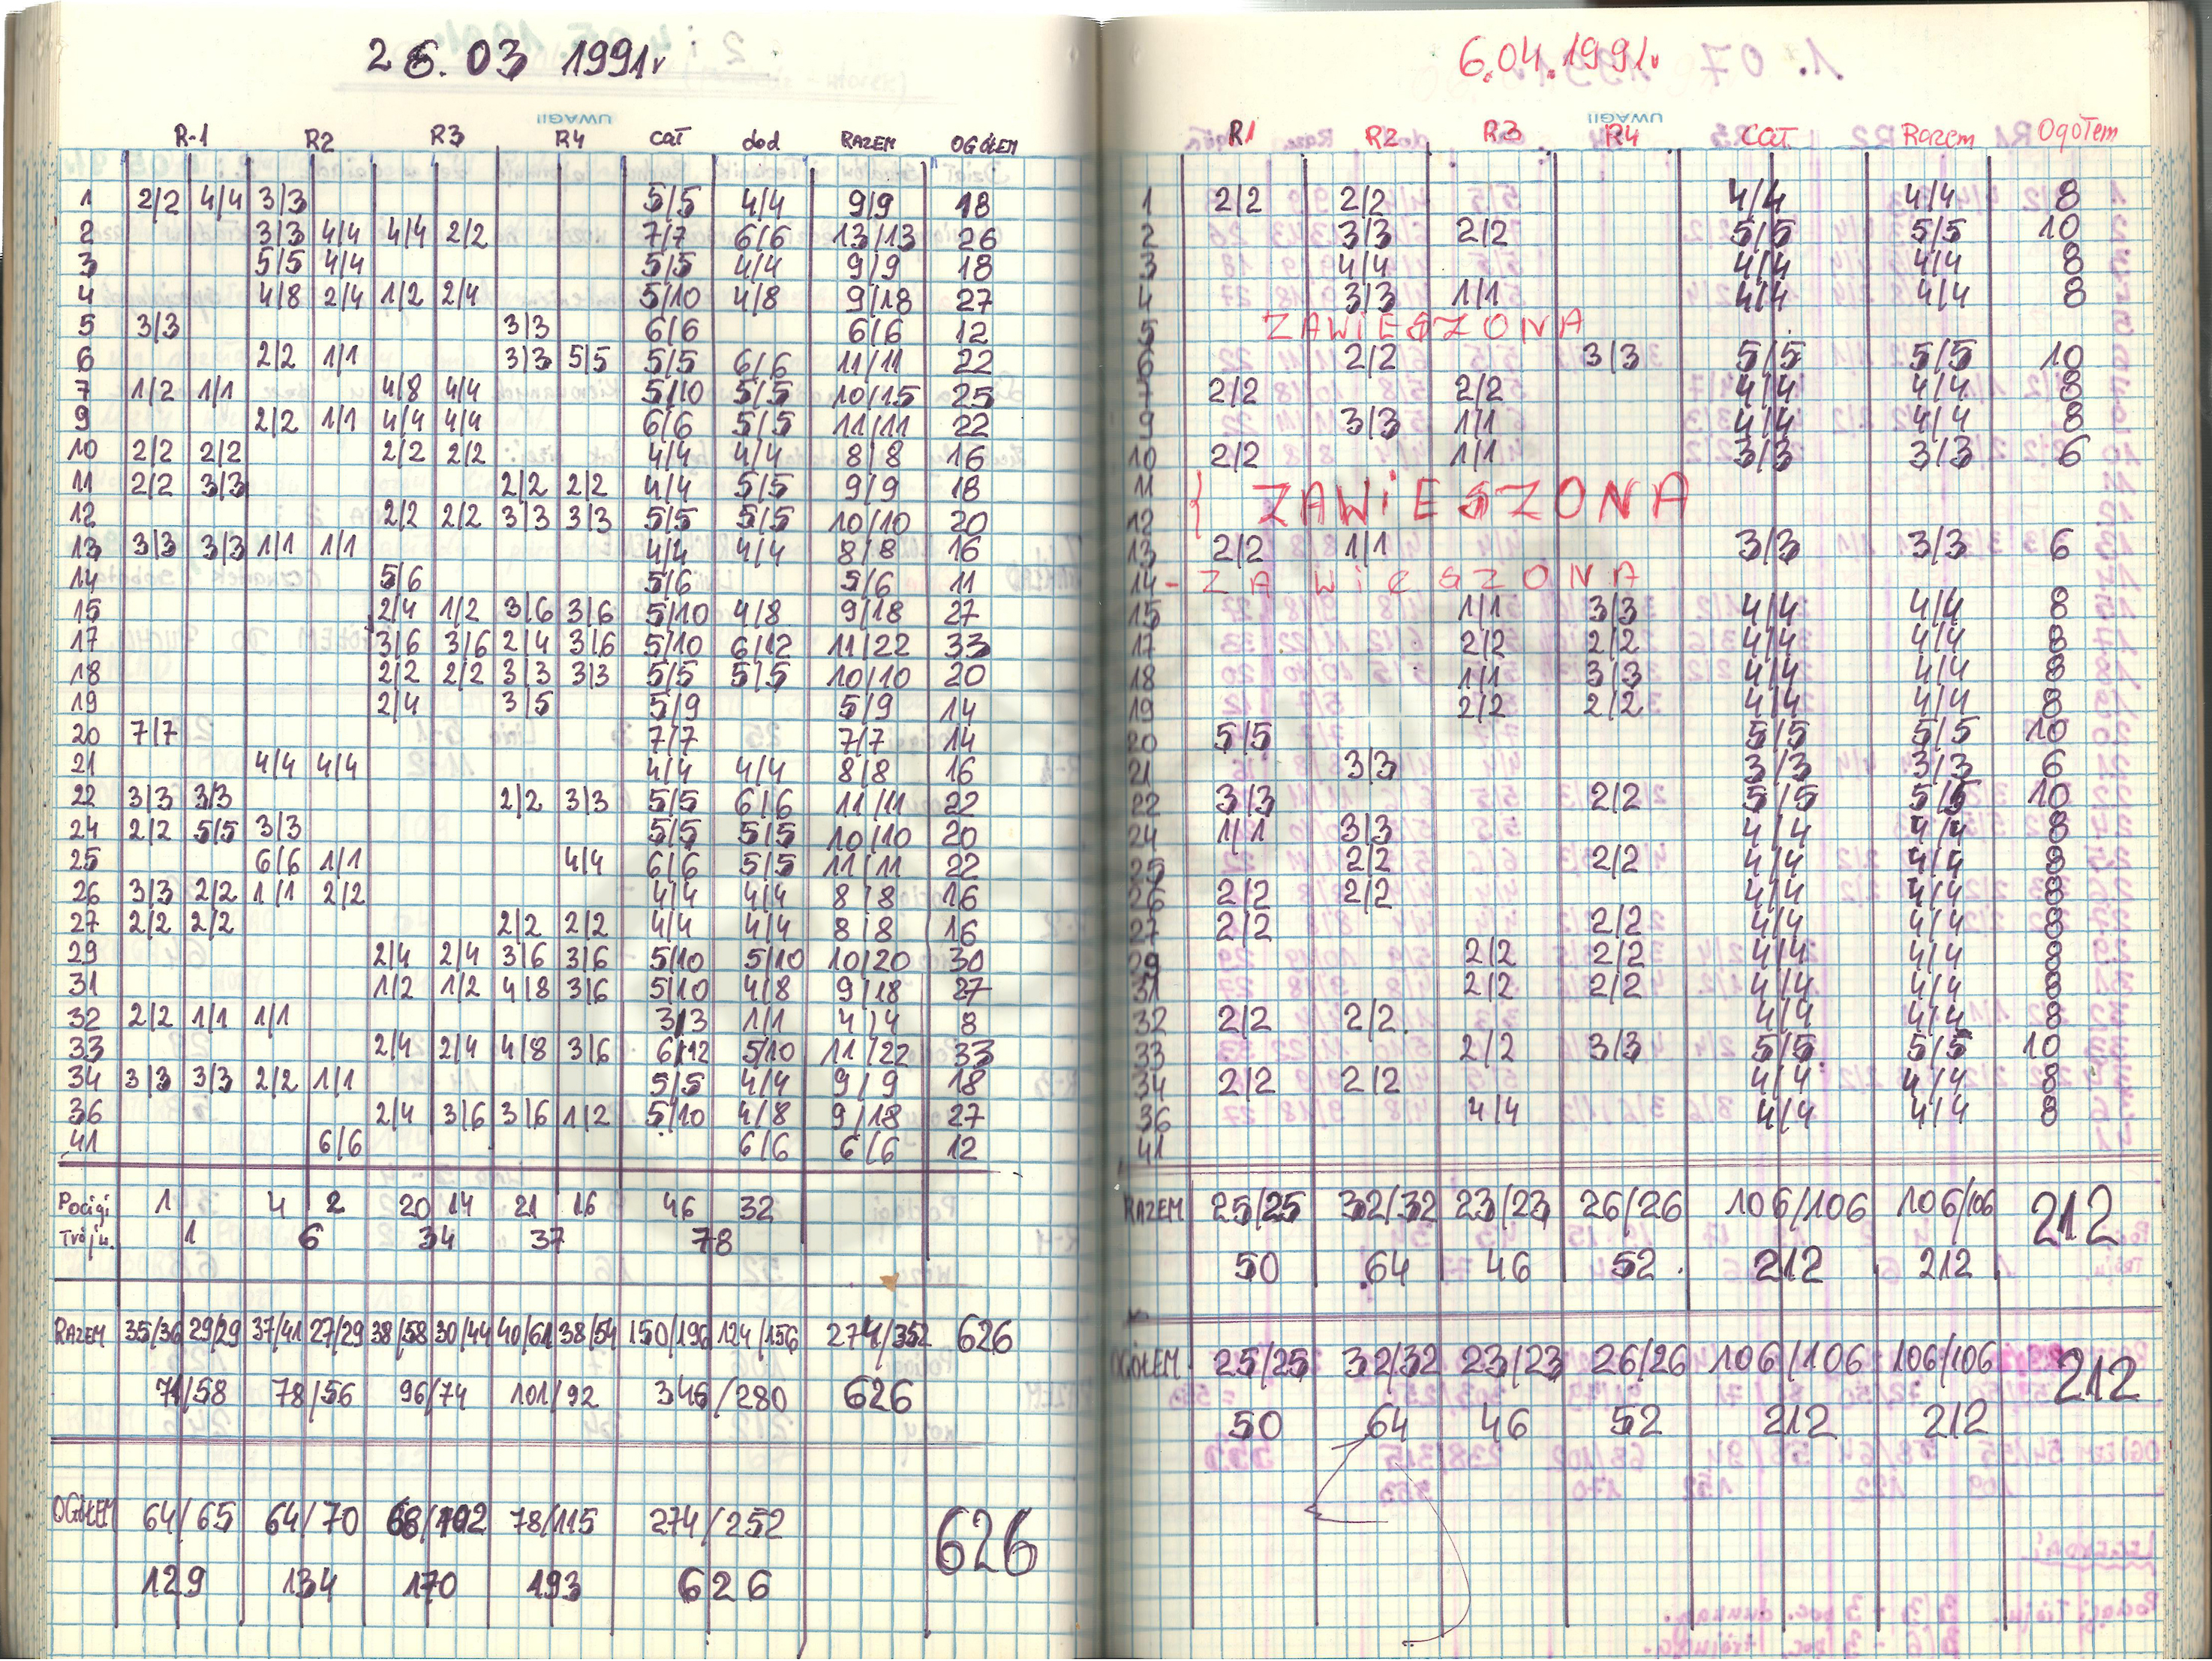 26.03 1991r
R-1 R2 R3 R4 cał dod RAZEM OGÓŁEM
1 2/2 4/4 3/3 5/5 4/4 9/9 18
2 3/3 4/4 4/4 2/2 7/7 6/6 13/13 26
3 5/5 4/4 5/5 4/4 9/9 18
4 4/8 2/4 1/2 2/4 5/10 4/8 9/18 27
5 3/3 3/3 6/6 6/6 12
6 2/2 1/1 3/3 5/5 5/5 6/6 11/11 22
7 1/2 1/1 4/8 4/4 5/10 5/5 10/15 25
9 2/2 1/1 4/4 4/4 6/6 5/5 11/11 22
10 2/2 2/2 2/2 2/2 4/4 4/4 8/8 16
11 2/2 3/3 2/2 2/2 4/4 5/5 9/9 18
12 2/2 2/2 3/3 3/3 5/5 5/5 10/10 20
13 3/3 3/3 1/1 1/1 4/4 4/4 8/8 16
14 5/6 5/6 5/6 11
15 2/4 1/2 3/6 3/6 5/10 4/8 9/18 27
17 3/6 3/6 2/4 3/6 5/10 6/12 11/22 33
18 2/2 2/2 3/3 3/3 5/5 5/5 10/10 20
19 2/4 3/5 5/9 5/9 14
20 7/7 7/7 7/7 14
21 4/4 4/4 4/4 4/4 8/8 16
22 3/3 3/3 2/2 3/3 5/5 6/6 11/11 22
24 2/2 5/5 3/3 5/5 5/5 10/10 20
25 6/6 1/1 4/4 6/6 5/5 11/11 22
26 3/3 2/2 1/1 2/2 4/4 4/4 8/8 16
27 2/2 2/2 2/2 2/2 4/4 4/4 8/8 16
29 2/4 2/4 3/6 3/6 5/10 5/10 10/20 30
31 1/2 1/2 4/8 3/6 5/10 4/8 9/18 27
32 2/2 1/1 1/1 3/3 1/1 4/4 8
33 2/4 2/4 4/8 3/6 6/12 5/10 11/22 33
34 3/3 3/3 2/2 1/1 5/5 4/4 9/9 18
36 2/4 3/6 3/6 1/2 5/10 4/8 9/18 27
41 6/6 6/6 6/6 12
Pociągi 1 4 2 20 14 21 16 46 32
Trójn. 1 6 34 37 78
RAZEM 35/36 29/29 37/41 27/29 38/58 30/44 40/61 38/54 150/196 124/156 274/352 626
71/58 78/56 96/74 101/92 346/280 626
OGÓŁEM 64/65 64/70 68/102 78/115 274/252 626
129 134 170 193 626
6.04.1991r
UWAGI!
R1 R2 R3 R4 Cał. Razem Ogółem
1 2/2 2/2 4/4 4/4 8
2 3/3 2/2 5/5 5/5 10
3 4/4 4/4 4/4 8
4 3/3 1/1 4/4 4/4 8
5 ZAWIESZONA
6 2/2 3/3 5/5 5/5 10
7 2/2 2/2 4/4 4/4 8
9 3/3 1/1 4/4 4/4 8
10 2/2 1/1 3/3 3/3 6
11
12 { ZAWIESZONA
13 2/2 1/1 3/3 3/3 6
14 - ZAWIESZONA
15 1/1 3/3 4/4 4/4 8
17 2/2 2/2 4/4 4/4 8
18 1/1 3/3 4/4 4/4 8
19 2/2 2/2 4/4 4/4 8
20 5/5 5/5 5/5 10
21 3/3 3/3 3/3 6
22 3/3 2/2 5/5 5/5 10
24 1/1 3/3 4/4 4/4 8
25 2/2 2/2 4/4 4/4 8
26 2/2 2/2 4/4 4/4 8
27 2/2 2/2 4/4 4/4 8
29 2/2 2/2 4/4 4/4 8
31 2/2 2/2 4/4 4/4 8
32 2/2 2/2. 4/4 4/4 8
33 2/2 3/3 5/5 5/5 10
34 2/2 2/2 4/4 4/4 8
36 4/4 4/4 4/4 8
41
RAZEM 25/25 32/32 23/23 26/26 106/106 106/106 212
50 64 46 52 212 212
OGÓŁEM 25/25 32/32 23/23 26/26 106/106 106/106 212
50 64 46 52 212 212